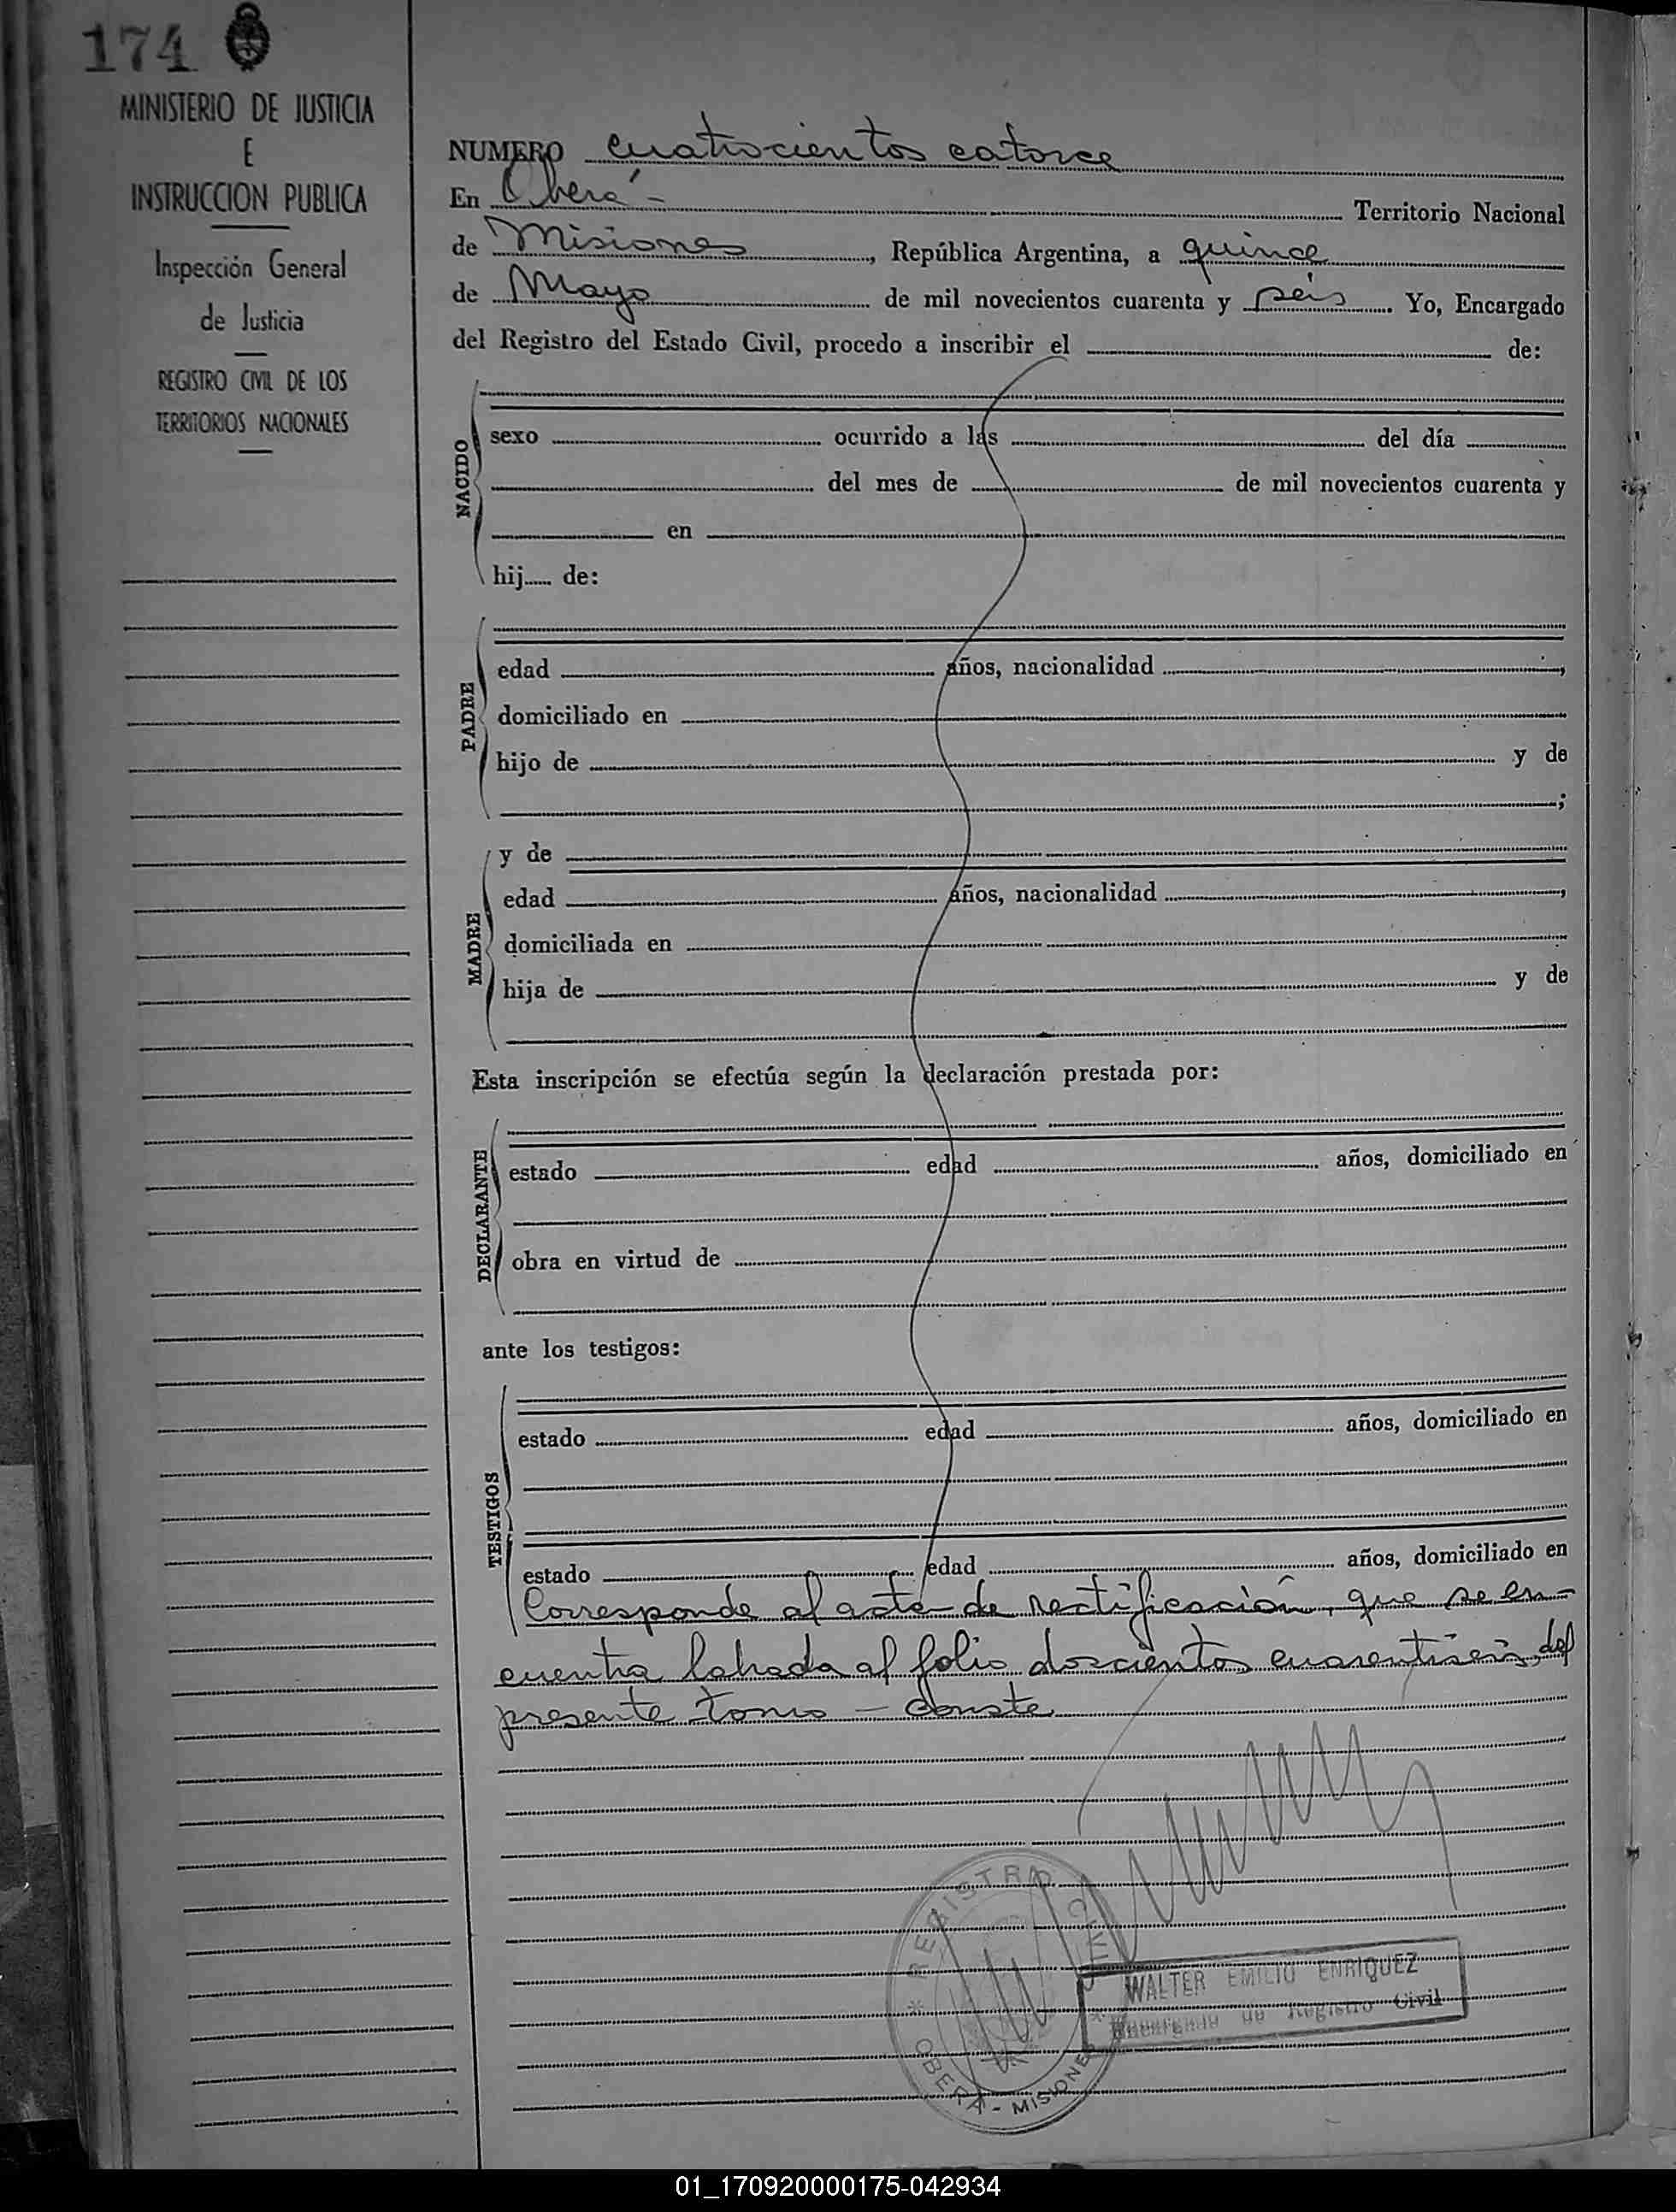 174
MINISTERIO DE JUSTICIA
E
INSTRUCCION PUBLICA
Inspección General
de Justicia
REGISTRO CIVIL DE LOS
TERRITORIOS NACIONALES
NUMERO cuatrocientos catorce
En Oberá - Territorio Nacional
de Misiones, República Argentina, a quince
de Mayo de mil novecientos cuarenta y seis. Yo, Encargado
del Registro del Estado Civil, procedo a inscribir el de:
NACIDO
sexo ocurrido a las del día
del mes de de mil novecientos cuarenta y
en
hij de:
PADRE
edad años, nacionalidad ,
domiciliado en
hijo de y de
;
MADRE
y de
edad años, nacionalidad ,
domiciliada en
hija de y de
Esta inscripción se efectúa según la declaración prestada por:
DECLARANTE
estado edad años, domiciliado en
obra en virtud de
ante los testigos:
TESTIGOS
estado edad años, domiciliado en
estado edad años, domiciliado en
Corresponde al acta de rectificación, que se en-
cuentra labrada al folio doscientos cuarentiseis, del
presente tomo - Conste
REGISTRO CIVIL
OBERÁ - MISIONES
WALTER EMILIO ENRIQUEZ
Encargado de Registro Civil
01_170920000175-042934